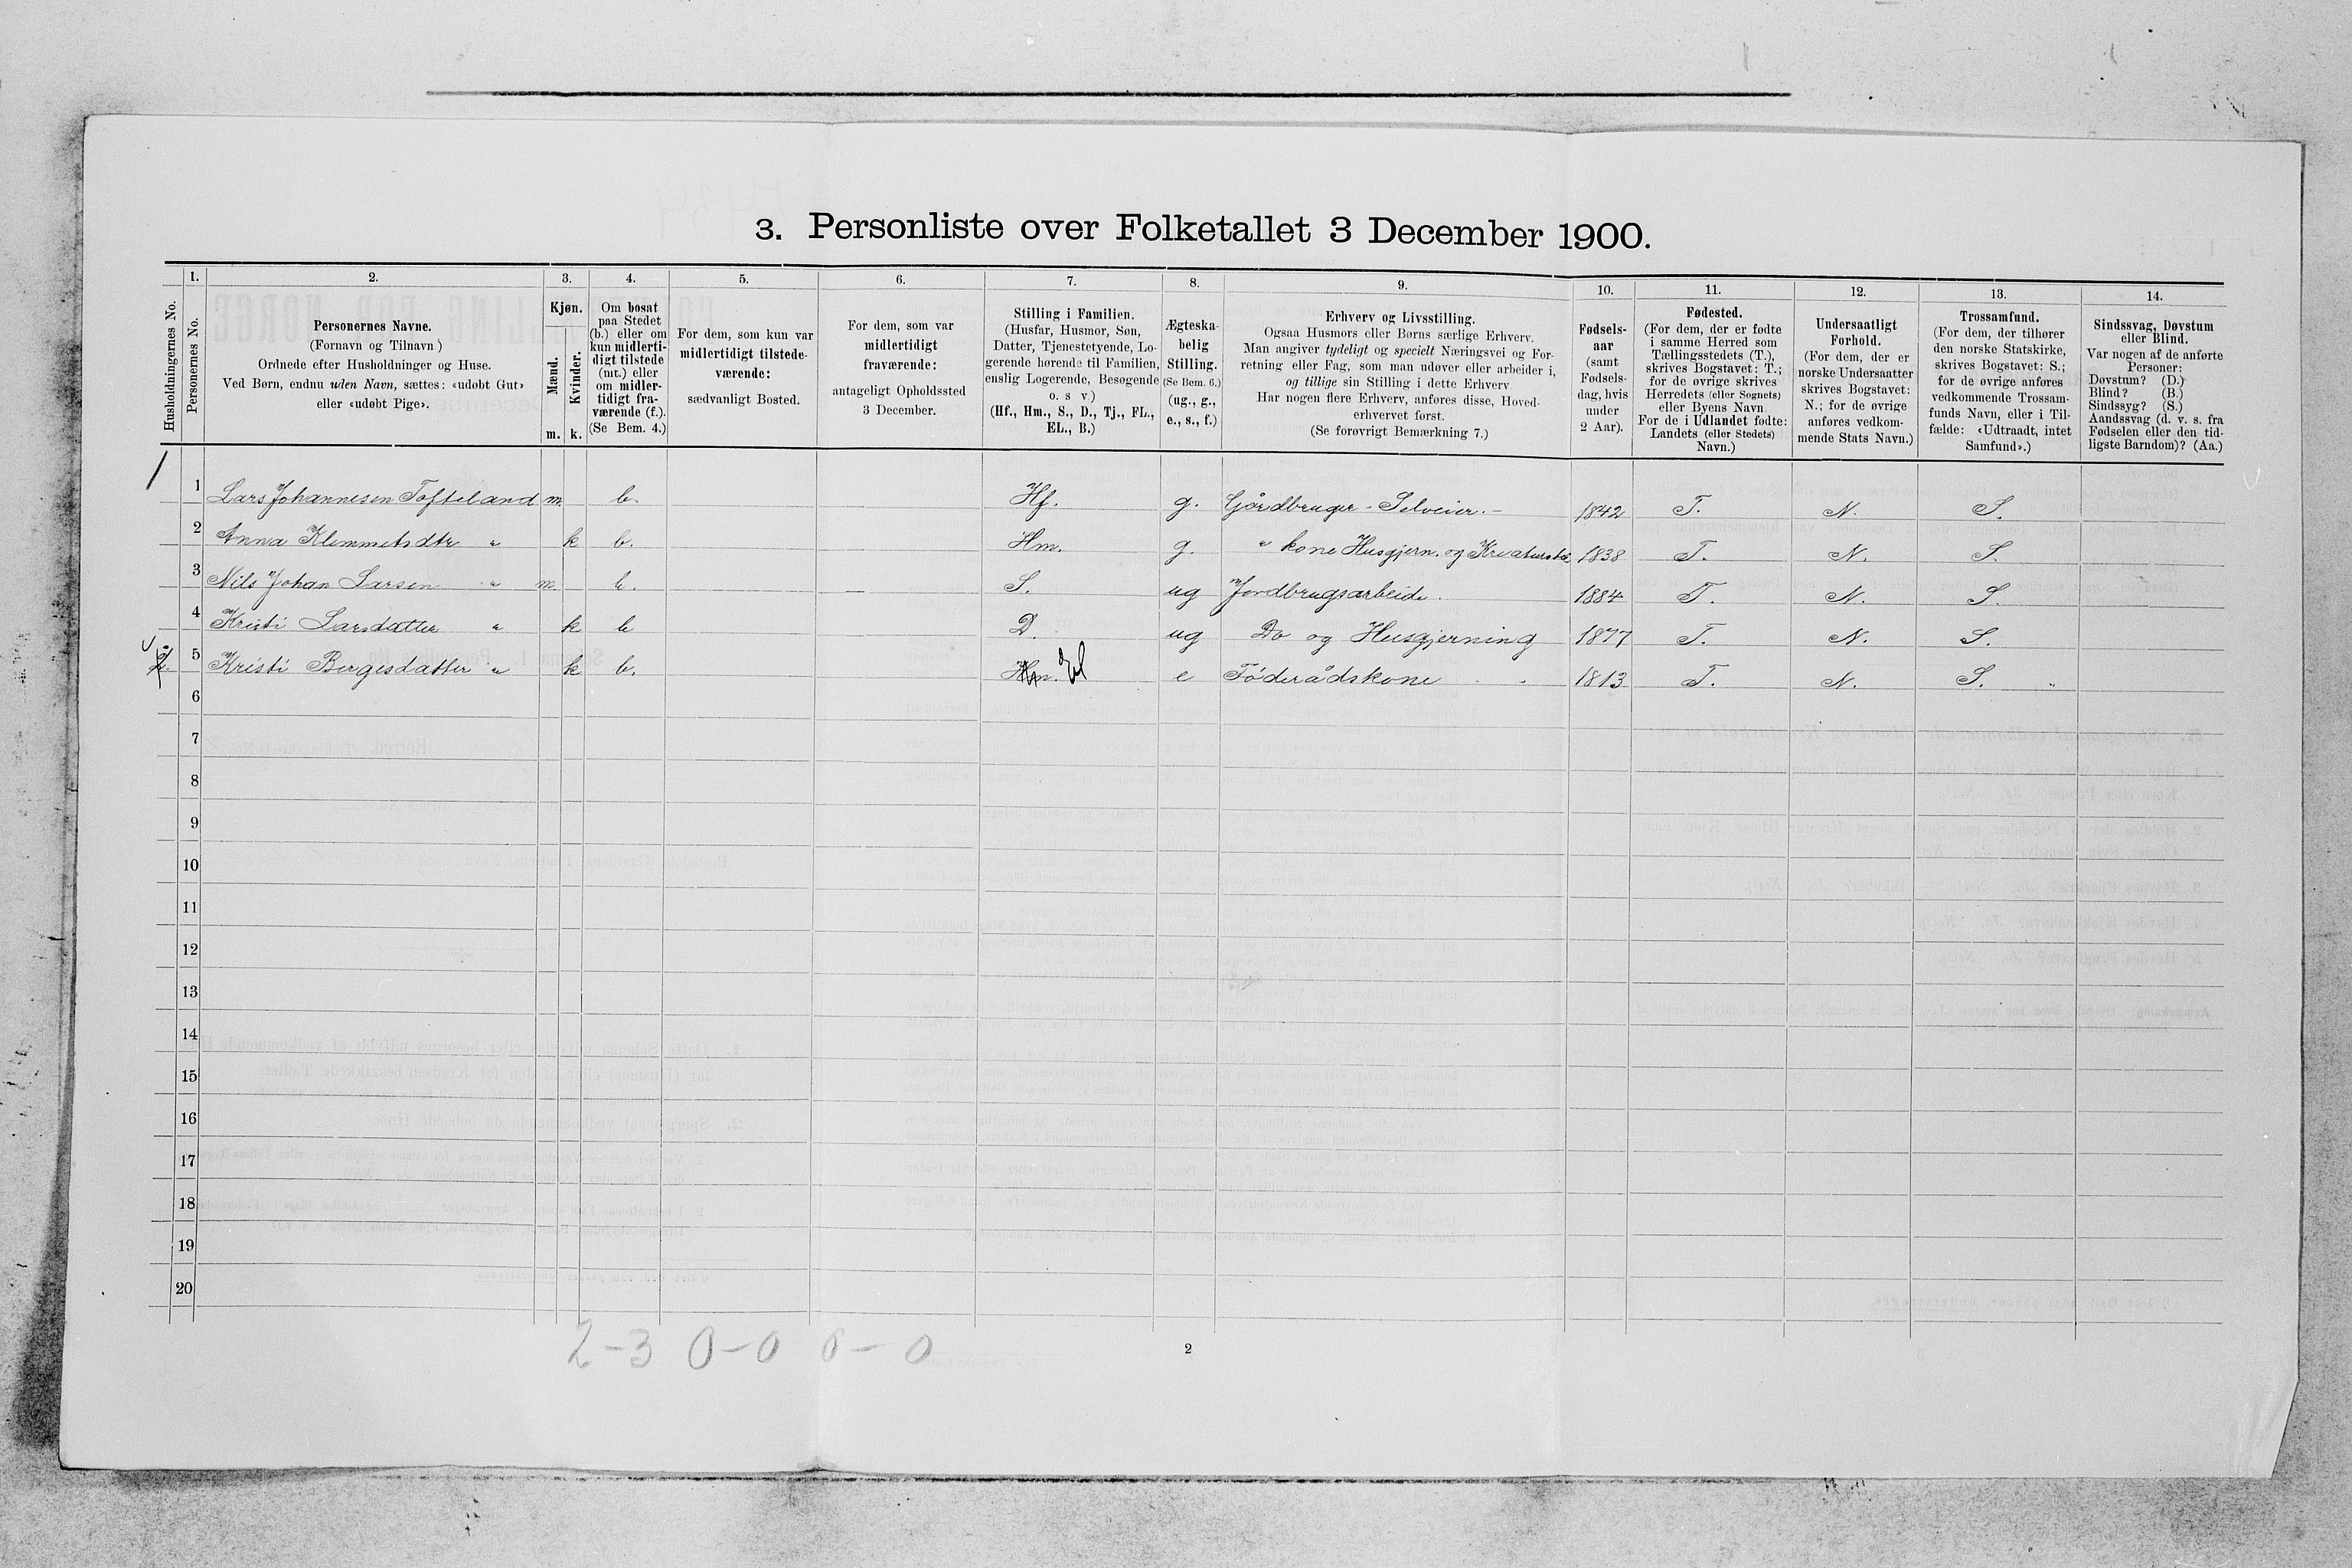 3. Personliste over Folketallet 3 December 1900.
Husholdningernes No.
1.
Personernes No.
2.
Personernes Navne.
(Fornavn og Tilnavn)
Ordnede efter Husholdninger og Huse.
Ved Børn, endnu uden Navn, sættes: «udøbt Gut»
eller «udøbt Pige».
3.
Kjøn.
Mænd.
Kvinder.
m. k.
4.
Om bosat
paa Stedet
(b.) eller om
kun midlerti-
digt tilstede
(mt.) eller
om midler-
tidigt fra-
værende (f.).
(Se Bem. 4.)
5.
For dem, som kun var
midlertidigt tilstede-
værende:
sædvanligt Bosted.
6.
For dem, som var
midlertidigt
fraværende:
antageligt Opholdssted
3 December.
7.
Stilling i Familien.
(Husfar, Husmor, Søn,
Datter, Tjenestetyende, Lo-
gerende hørende til Familien,
enslig Logerende, Besøgende
o. s v)
(Hf., Hm., S., D., Tj., FL.,
EL., B.)
8.
Ægteska-
belig
Stilling.
(Se Bem. 6.)
(ug., g.,
e., s., f.)
9.
Erhverv og Livsstilling.
Ogsaa Husmors eller Børns særlige Erhverv.
Man angiver tydeligt og specielt Næringsvei og For-
retning eller Fag, som man udøver eller arbeider i,
og tillige sin Stilling i dette Erhverv
Har nogen flere Erhverv, anføres disse, Hoved-
erhvervet først.
(Se forøvrigt Bemærkning 7.)
10.
Fødsels-
aar
(samt
Fødsels-
dag, hvis
under
2 Aar).
11.
Fødested.
(For dem, der er fødte
i samme Herred som
Tællingsstedets (T.),
skrives Bogstavet: T.;
for de øvrige skrives
Herredets (eller Sognets)
eller Byens Navn.
For de i Udlandet fødte:
Landets (eller Stedets)
Navn.)
12.
Undersaatligt
Forhold.
(For dem, der er
norske Undersaatter
skrives Bogstavet:
N.; for de øvrige
anføres vedkom-
mende Stats Navn.)
13.
Trossamfund.
(For dem, der tilhører
den norske Statskirke,
skrives Bogstavet: S.;
for de øvrige anføres
vedkommende Trossam-
funds Navn, eller i Til-
fælde: «Udtraadt, intet
Samfund».)
14.
Sindssvag, Døvstum
eller Blind.
Var nogen af de anførte
Personer:
Døvstum? (D.)
Blind? (B.)
Sindssyg? (S.)
Aandssvag (d. v. s. fra
Fødselen eller den tid-
ligste Barndom)? (Aa.)
1 Lars Johannesen Tofteland m. b. Hf. g. Gårdbruger - Selveier. - 1842 T. N. S.
2 Anna Klemmetsdtr " k b. Hm. g. " kone Husgjern. og Kreaturstel 1838 T. N. S.
3 Nils Johan Larsen " m. b. — S. ug Jordbrugsarbeide. 1884 T. N. S.
4 Kristi Larsdatter " k b D. ug Do og Husgjerning 1877 T. N. S.
5 Kristi Bergesdatter " k b. Hm. el e Føderådskone 1813 T. N. S. "
6
7
8
9
10
11
12
13
14
15
16
17
18
19
20
2-3 0-0 0-0
2